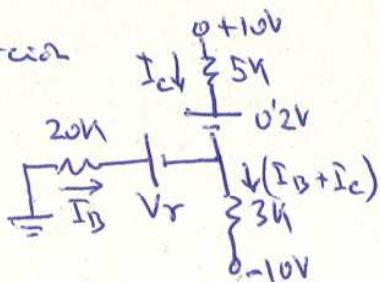 +10V
Ic↓ 5K
0'2V
20K
I_B Vγ
↓(I_B + I_c)
3K
-10V